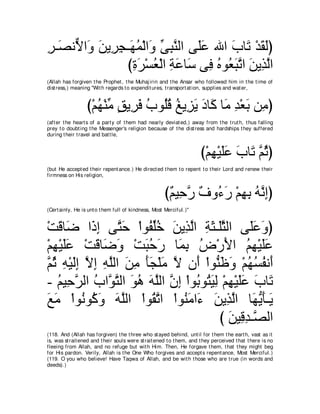 (لَقَدْ تَابَ الله عَلَى النَّبِىِّ وَالْمُهَـجِرِينَ وَالاٌّنصَـرِ
الَّذِينَ اتَّبَعُوهُ فِى سَاعَةِ الْعُسْرَةِ)
(Allah has forgiven the Prophet, the Muhajirin and the Ansar who followed him in the time of
distress,) meaning "With regards to expenditures, transportation, supplies and water,
(مِن بَعْدِ مَا كَادَ يَزِيغُ قُلُوبُ فَرِيقٍ مِّنْهُمْ)
(after the hearts of a party of them had nearly deviated,) away from the truth, thus falling
prey to doubting the Messenger's religion because of the distress and hardships they suffered
during their travel and battle,
(ثُمَّ تَابَ عَلَيْهِمْ)
(but He accepted their repentance.) He directed them to repent to their Lord and renew their
firmness on His religion,
(إِنَّهُ بِهِمْ رَءُوفٌ رَّحِيمٌ)
(Certainly, He is unto them full of kindness, Most Merciful.)"
(وَعَلَى الثَّلَـثَةِ الَّذِينَ خُلِّفُواْ حَتَّى إِذَا ضَاقَتْ
عَلَيْهِمُ الأَرْضُ بِمَا رَحُبَتْ وَضَاقَتْ عَلَيْهِمْ
أَنفُسُهُمْ وَظَنُّواْ أَن لاَّ مَلْجَأَ مِنَ اللَّهِ إِلاَّ إِلَيْهِ ثُمَّ
تَابَ عَلَيْهِمْ لِيَتُوبُواْ إِنَّ اللَّهَ هُوَ التَّوَّابُ الرَّحِيمُ -
يَـأَيُّهَا الَّذِينَ ءَامَنُواْ اتَّقُواْ اللَّهَ وَكُونُواْ مَعَ
الصَّـدِقِينَ )
(118. And (Allah has forgiven) the three who stayed behind, until for them the earth, vast as it
is, was straitened and their souls were straitened to them, and they perceived that there is no
fleeing from Allah, and no refuge but with Him. Then, He forgave them, that they might beg
for His pardon. Verily, Allah is the One Who forgives and accepts repentance, Most Merciful.)
(119. O you who believe! Have Taqwa of Allah, and be with those who are true (in words and
deeds).)